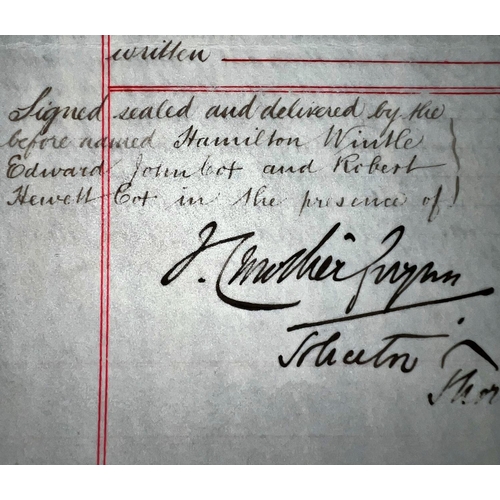 written
Signed sealed and delivered by the
before named Hamilton Wintle
Edward John Cox and Robert
Hewett Cox in the presence of
Solicitor